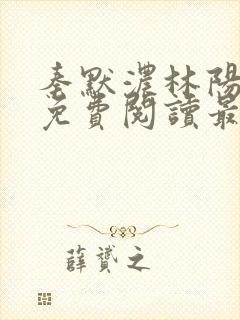 秦默濃林陽
免費閱讀最
薛贇之